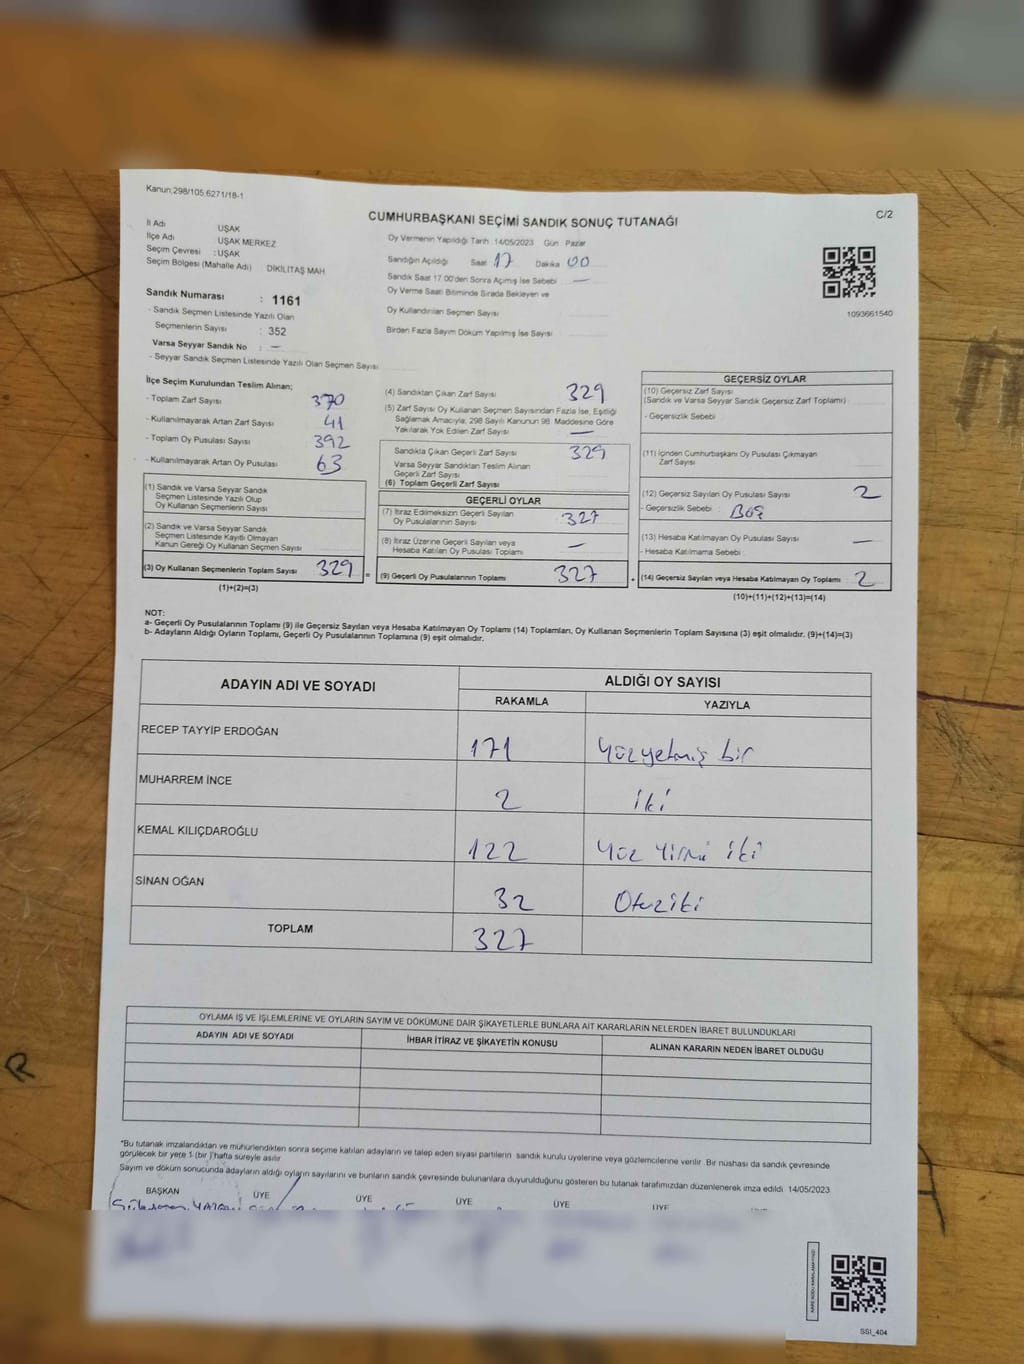 Kanun,298/105,6271/18-1
C/2
CUMHURBAŞKANI SEÇİMİ SANDIK SONUÇ TUTANAĞI
İl Adı UŞAK
İlçe Adı UŞAK MERKEZ
Seçim Çevresi :UŞAK
Seçim Bölgesi (Mahalle Adı) : DİKİLİTAŞ MAH
Sandık Numarası : 1161
- Sandık Seçmen Listesinde Yazılı Olan
Seçmenlerin Sayısı : 352
Varsa Seyyar Sandık No : —
- Seyyar Sandık Seçmen Listesinde Yazılı Olan Seçmen Sayısı
Oy Vermenin Yapıldığı Tarih 14/05/2023 Gün Pazar
Sandığın Açıldığı Saat 17 Dakika 00
Sandık Saat 17:00'den Sonra Açımış İse Sebebi —
Oy Verme Saati Bitiminde Sırada Bekleyen ve
Oy Kullandırılan Seçmen Sayısı
Birden Fazla Sayım Döküm Yapılmış İse Sayısı
1093661540
İlçe Seçim Kurulundan Teslim Alınan;
- Toplam Zarf Sayısı 370
- Kullanılmayarak Artan Zarf Sayısı 41
- Toplam Oy Pusulası Sayısı 392
- Kullanılmayarak Artan Oy Pusulası 63
(1) Sandık ve Varsa Seyyar Sandık
Seçmen Listesinde Yazılı Olup
Oy Kullanan Seçmenlerin Sayısı
(2) Sandık ve Varsa Seyyar Sandık
Seçmen Listesinde Kayıtlı Olmayan
Kanun Gereği Oy Kullanan Seçmen Sayısı
(3) Oy Kullanan Seçmenlerin Toplam Sayısı 329 =
(1)+(2)=(3)
(4) Sandıktan Çıkan Zarf Sayısı 329
(5) Zarf Sayısı Oy Kullanan Seçmen Sayısından Fazla İse, Eşitliği
Sağlamak Amacıyla, 298 Sayılı Kanunun 98. Maddesine Göre
Yakılarak Yok Edilen Zarf Sayısı —
Sandıkta Çıkan Geçerli Zarf Sayısı 329
Varsa Seyyar Sandıktan Teslim Alınan
Geçerli Zarf Sayısı
(6) Toplam Geçerli Zarf Sayısı
GEÇERLİ OYLAR
(7) İtiraz Edilmeksizin Geçerli Sayılan
Oy Pusulalarının Sayısı 327
(8) İtiraz Üzerine Geçerli Sayılan veya
Hesaba Katılan Oy Pusulası Toplamı —
(9) Geçerli Oy Pusulalarının Toplamı 327 +
GEÇERSİZ OYLAR
(10) Geçersiz Zarf Sayısı
(Sandık ve Varsa Seyyar Sandık Geçersiz Zarf Toplamı)
- Geçersizlik Sebebi
(11) İçinden Cumhurbaşkanı Oy Pusulası Çıkmayan
Zarf Sayısı
(12) Geçersiz Sayılan Oy Pusulası Sayısı 2
- Geçersizlik Sebebi : Boş
(13) Hesaba Katılmayan Oy Pusulası Sayısı —
- Hesaba Katılmama Sebebi
(14) Geçersiz Sayılan veya Hesaba Katılmayan Oy Toplamı 2
(10)+(11)+(12)+(13)=(14)
NOT:
a- Geçerli Oy Pusulalarının Toplamı (9) ile Geçersiz Sayılan veya Hesaba Katılmayan Oy Toplamı (14) Toplamları, Oy Kullanan Seçmenlerin Toplam Sayısına (3) eşit olmalıdır. (9)+(14)=(3)
b- Adayların Aldığı Oyların Toplamı, Geçerli Oy Pusulalarının Toplamına (9) eşit olmalıdır.
ADAYIN ADI VE SOYADI ALDIĞI OY SAYISI
RAKAMLA YAZIYLA
RECEP TAYYİP ERDOĞAN 171 Yüzyetmiş bir
MUHARREM İNCE 2 iki
KEMAL KILIÇDAROĞLU 122 Yüz Yirmi iki
SİNAN OĞAN 32 Otuziki
TOPLAM 327
OYLAMA İŞ VE İŞLEMLERİNE VE OYLARIN SAYIM VE DÖKÜMÜNE DAİR ŞİKAYETLERLE BUNLARA AİT KARARLARIN NELERDEN İBARET BULUNDUKLARI
ADAYIN ADI VE SOYADI İHBAR İTİRAZ VE ŞİKAYETİN KONUSU ALINAN KARARIN NEDEN İBARET OLDUĞU
*Bu tutanak imzalandıktan ve mühürlendikten sonra seçime katılan adayların ve talep eden siyasi partilerin sandık kurulu üyelerine veya gözlemcilerine verilir. Bir nüshası da sandık çevresinde
görülecek bir yere 1 (bir )'hafta süreyle asılır
Sayım ve döküm sonucunda adayların aldığı oyların sayılarını ve bunların sandık çevresinde bulunanlara duyurulduğunu gösteren bu tutanak tarafımızdan düzenlenerek imza edildi. 14/05/2023
BAŞKAN ÜYE ÜYE ÜYE ÜYE ÜYE
SSI_404